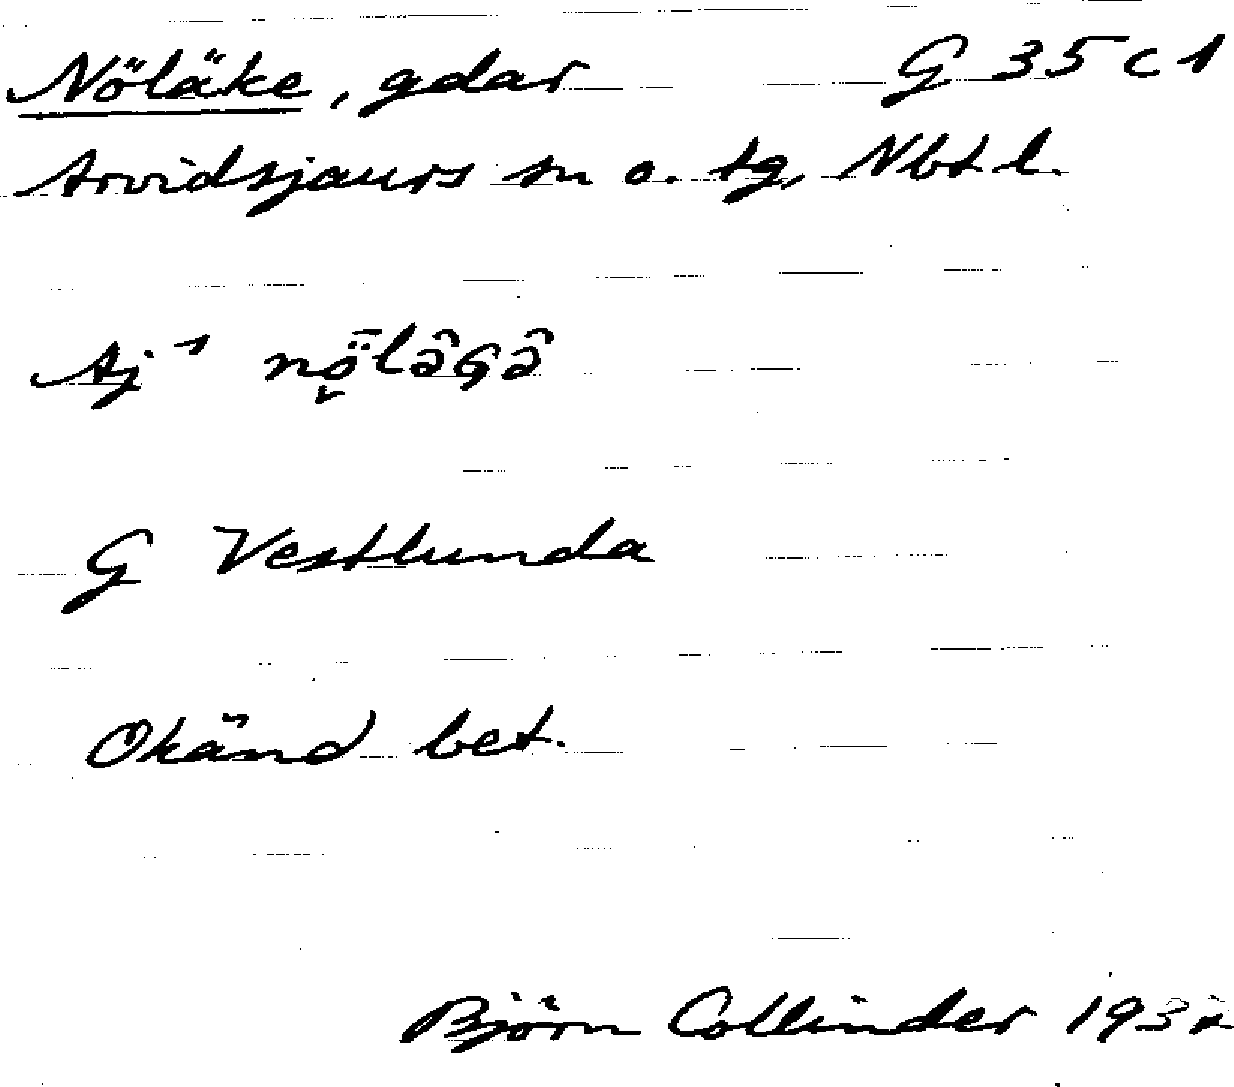 Nöläke, gdar G 35 c 1
Arvidsjaurs sn o. tg, Nbt l.
Aj
G Vestlunda
Okänd bet.
Björn Collinder